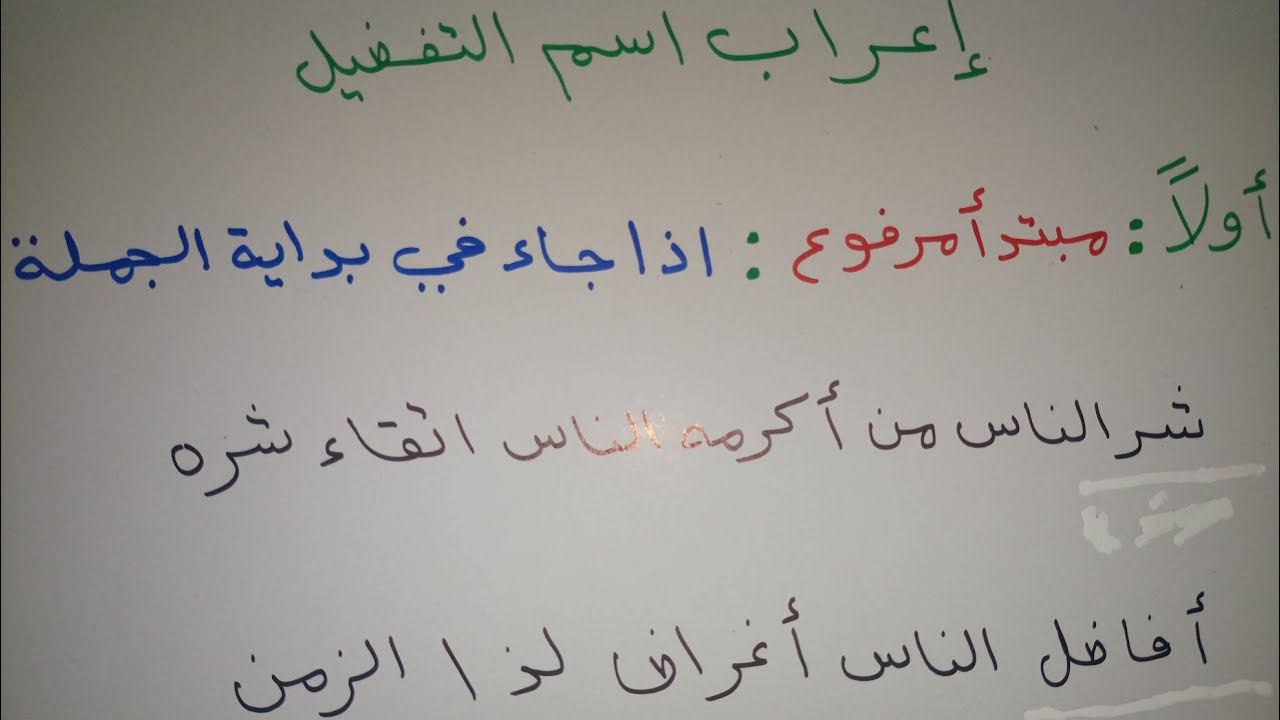 إعراب اسم التفضيل
أولاً : مبتدأ مرفوع : اذا جاء في بداية الجملة
شر الناس من أكرمه الناس اتقاء شره
أفاضل الناس أغراض لذا الزمن